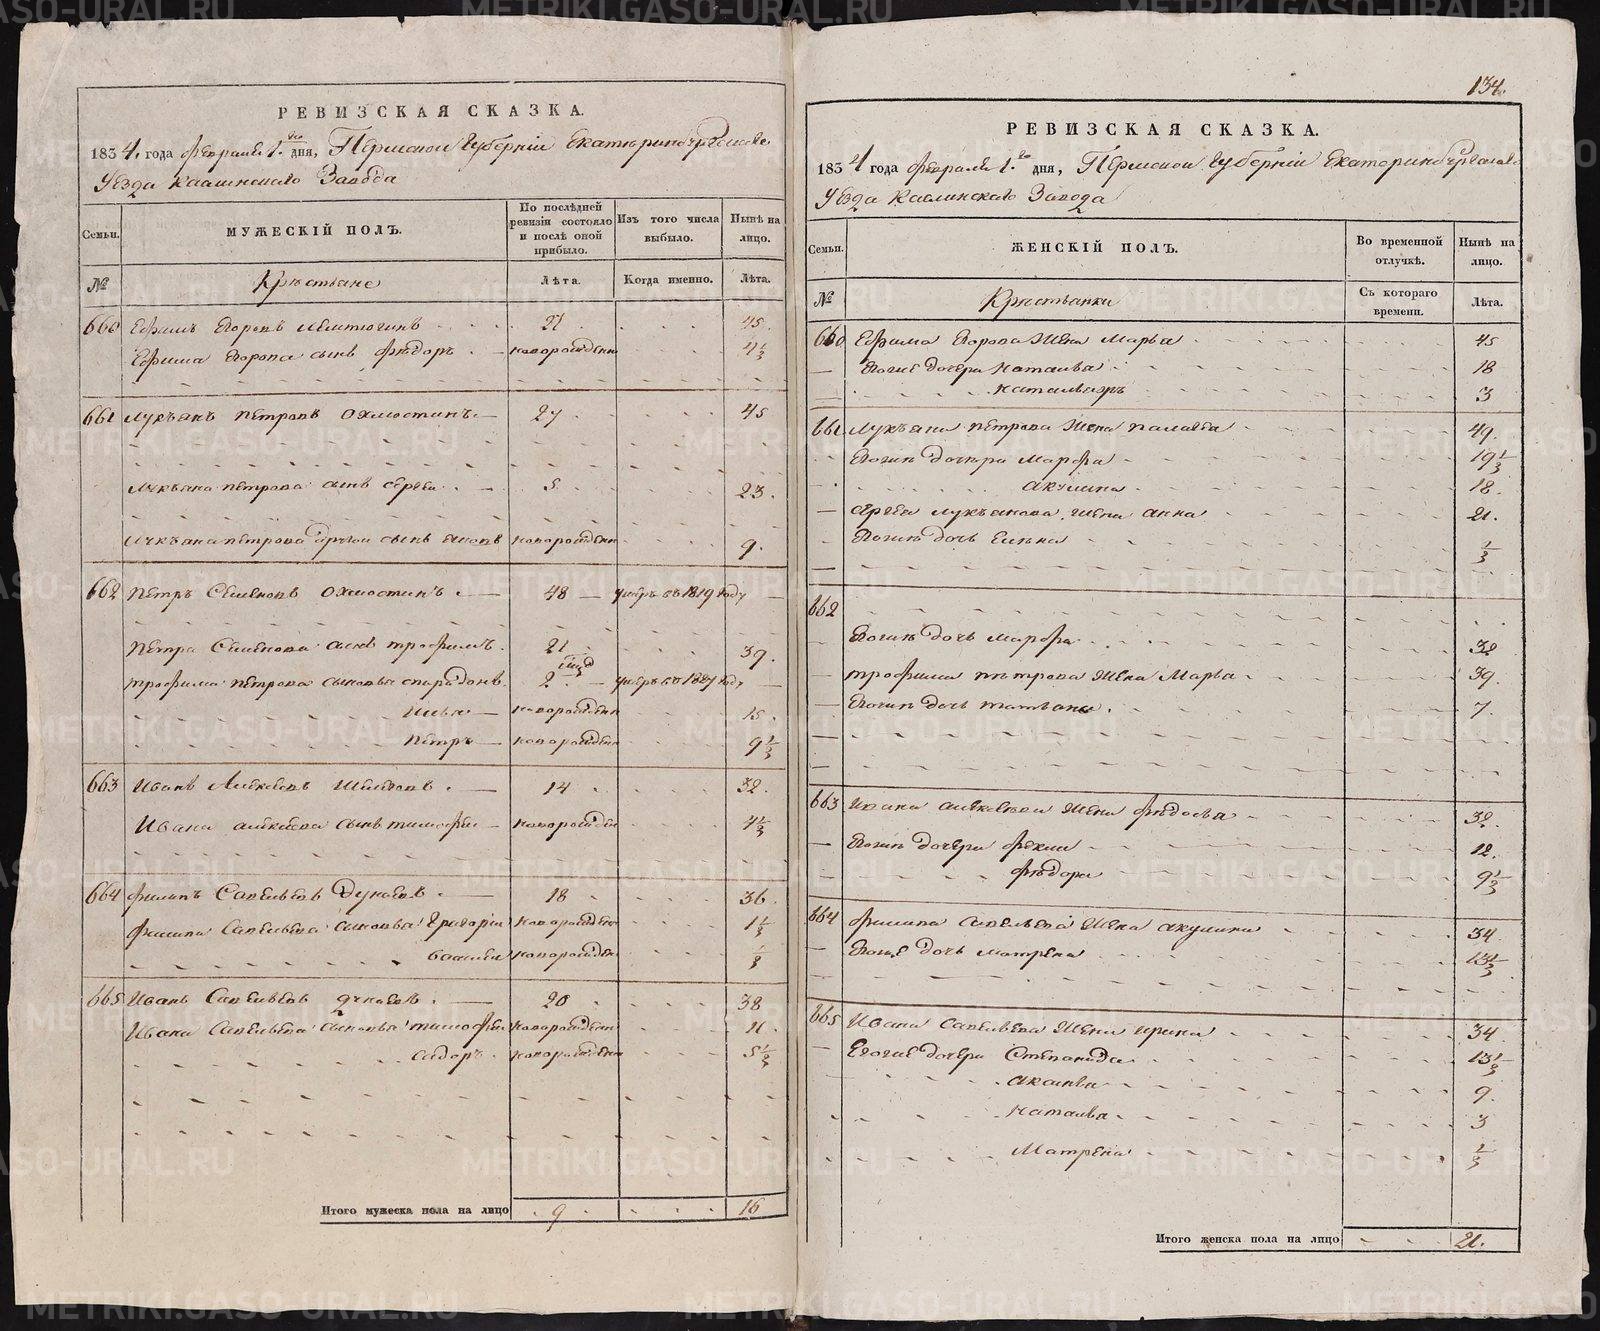 РЕВИЗСКАЯ СКАЗКА.
1834. года февраля 1.го дня, Пермской Губернiи Екатеринбургскаго
Уезда Каслинскаго Завода
Семьи.
МУЖЕСКIЙ ПОЛЪ.
По послѣдней ревизiи состояло и послѣ оной прибыло.
Изъ того числа выбыло.
Нынѣ на лицо.
№ Крестьяне Лѣта. Когда именно. Лѣта.
660 Ефимъ Егоровъ 27 45.
Ефима Егорова сынъ Федоръ новорожденъ 4 1/3
661 Лукьянъ Петровъ Охлюстинъ 27 45
Лукьяна Петрова сынъ Сергей 5. 23.
Лукьяна Петрова другой сынъ Яковъ новорожденъ 9.
662 Петръ Семеновъ Охлюстинъ 48 умеръ въ 1819 году
Петра Семенова сынъ Трофимъ 21 39.
Трофима Петрова сыновья Спиридонъ 2 умеръ въ 1827 году
новорожденъ 15.
Петръ новорожденъ 9 1/2
663 Иванъ Алексеевъ 14 32.
Ивана Алексеева сынъ Тимофей новорожденъ 4 1/3
664 Филипъ Савельевъ Дунаевъ 18 36.
Филипа Савельева сыновья Григорiй новорожденъ 1 1/3
Василей новорожденъ 1/2
665 Иванъ Савельевъ Дунаевъ 20 38
Ивана Савельева сыновья Тимофей новорожденъ 11.
Сидоръ новорожденъ 5 1/2
Итого мужеска пола на лицо 9 16
134.
РЕВИЗСКАЯ СКАЗКА.
1834 года февраля 1.го дня, Пермской Губернiи Екатеринбургскаго
Уезда Каслинскаго Завода
Семьи.
ЖЕНСКIЙ ПОЛЪ.
Во временной отлучкѣ.
Нынѣ на лицо.
№ Крестьянки Съ котораго времени. Лѣта.
660 Ефима Егорова жена Марья 45
Егоже дочери Наталья 18
Наталья жъ 3
661. Лукьяна Петрова жена Палагея 49.
Егоже дочери Марфа 19 1/3
Акулина 18.
Сергея Лукьянова жена Анна 21.
Егоже дочь Елена 1/3
662
Егоже дочь Марфа 32
Трофима Петрова жена Марья 39.
Егоже дочь Татьяна 7.
663 Ивана Алексеева жена Федосья 32.
Егоже дочери Фекла 12.
Федора 9 1/2
664 Филипа Савельева жена Акулина 34.
Егоже дочь Матрена 13 1/3
665 Ивана Савельева жена Ирина 34
Егоже дочери Степанида 13 1/2
9.
Наталья 3
Матрена 1/3
Итого женска пола на лицо 21.
METRIKI.GASO-URAL.RU